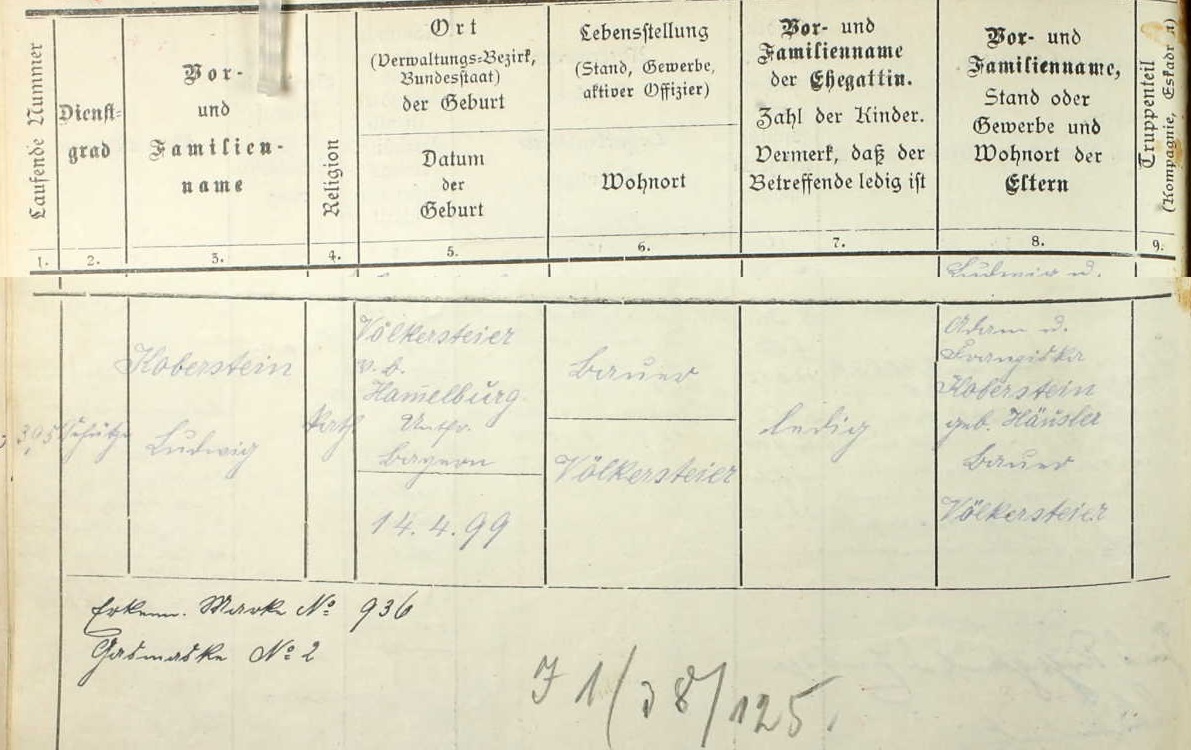 Laufende Nummer
Dienst=
grad
Vor-
und
Familien-
name
Religion
Ort
(Verwaltungs=Bezirk,
Bundesstaat)
der Geburt
Datum
der
Geburt
Lebensstellung
(Stand, Gewerbe,
aktiver Offizier)
Wohnort
Vor- und
Familienname
der Ehegattin.
Zahl der Kinder.
Vermerk, daß der
Betreffende ledig ist
Vor- und
Familienname,
Stand oder
Gewerbe und
Wohnort der
Eltern
Truppenteil
(Kompagnie, Eskadron)
1. 2. 3. 4. 5. 6. 7. 8. 9.
Ludwig u.
395
Schütze
Koberstein
Ludwig
Kath
Völkersteier
v. b.
Ham̅elburg
Untfr.
Bayern
14.4.99
Bauer
Völkersteier
ledig
Adam u.
Franziska
Koberstein
geb. Häusler
Bauer
Völkersteier
Erkenn. Marke No 936
Gasmaske No 2
J 1/38/125.